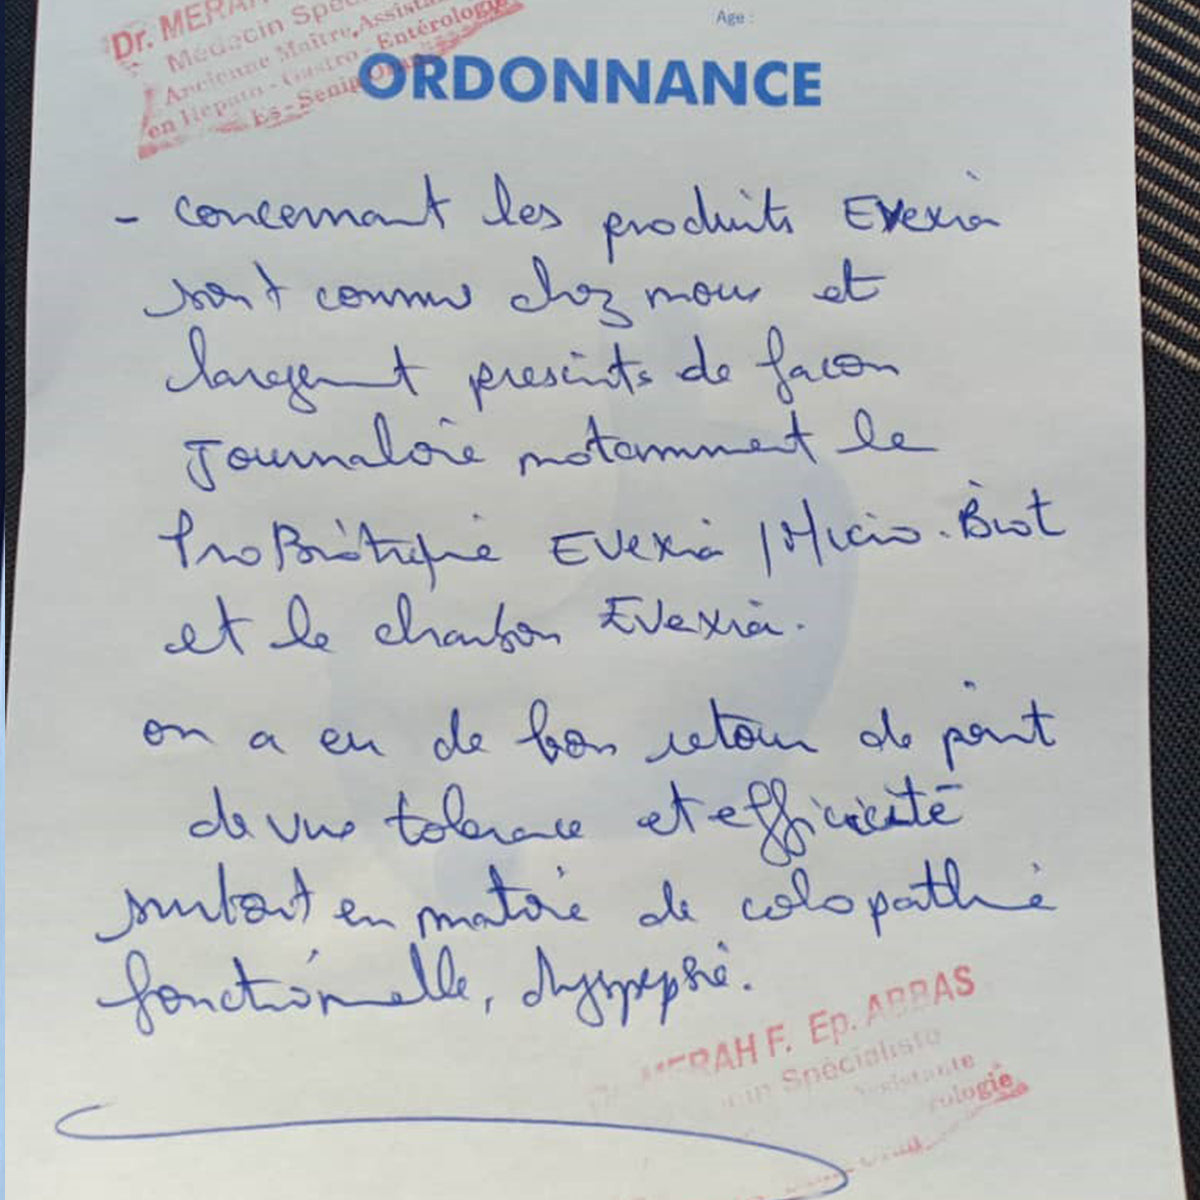 Age :
Dr. MERAH
Médecin Spéc
Ancienne Maître Assista
en Hépato - Gastro - Entérologie
Es - Senia Oran
ORDONNANCE
- Concernant les produits Evexia
sont connus chez nous et
largement prescrits de façon
Journaloire notamment le
ProBiotique Evexia / Micro.Biot
et le charbon Evexia.
on a eu de bon retour de point
de vue tolerance et efficicité
surtout en matière de colopathie
fonctionnelle, dyspepsie.
MERAH F. Ep. ABBAS
Spécialiste
Assistante
rologie